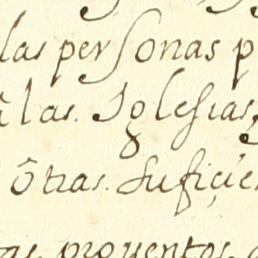 las perſonas p
â las. Iglesias,
ôtras. sufiçie
prouentos.